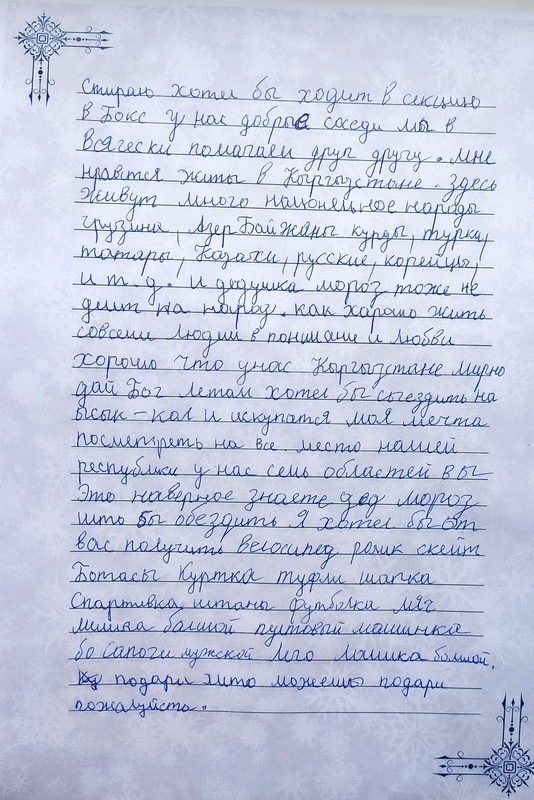 стираю хотел бы ходит в секцию
в Бокс у нас добрые соседи мы в
всягески помагаем друг другу. мне
нравится житы в Кыргызстане. здесь
живут много национецное народы
грузина, Азер Байжаны курды, турки,
татары, Казахи, русские, корейцы,
и т. д. и дедушка мороз тоже не
делит на нароз. как харашо жить
совсеми людми в понимане и любви
хорошо что унас Кыргызстане мирно
дай Бог летом хотел бы сыездить на
Ысык-кол и искупатя моя мечта
посметреть на все. место нашей
республики у нас семь областей вы
Это наверное знаете дед мороз
што бы обездить Я хотел бы от
вас получить велосипед ролик скейт
Ботасы Куртка туфли шапка
Спартивка, штаны футболка мяч
машина балшой пултовый машинка
бо Сапоги мужской Лего Машика болшой.
подари што можешы подари
пожалуйста.